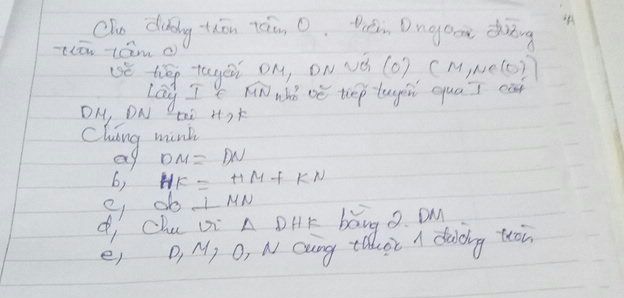 Cho đường tròn tâm O. Điểm D ngoài đường
tròn tâm O
Vẽ tiếp tuyến DM, DN với (O) (M,N∈(O))
Lấy I ∈ MN nhỏ vẽ tiếp tuyến qua I cắt
DM, DN tại H, K
Chứng minh
a) DM = DN
b, HK = HM + KN
c, do ⊥ MN
d, Chu vi Δ DHK bằng 2.DM
e, D, M, O, N cùng thuộc 1 đường tròn